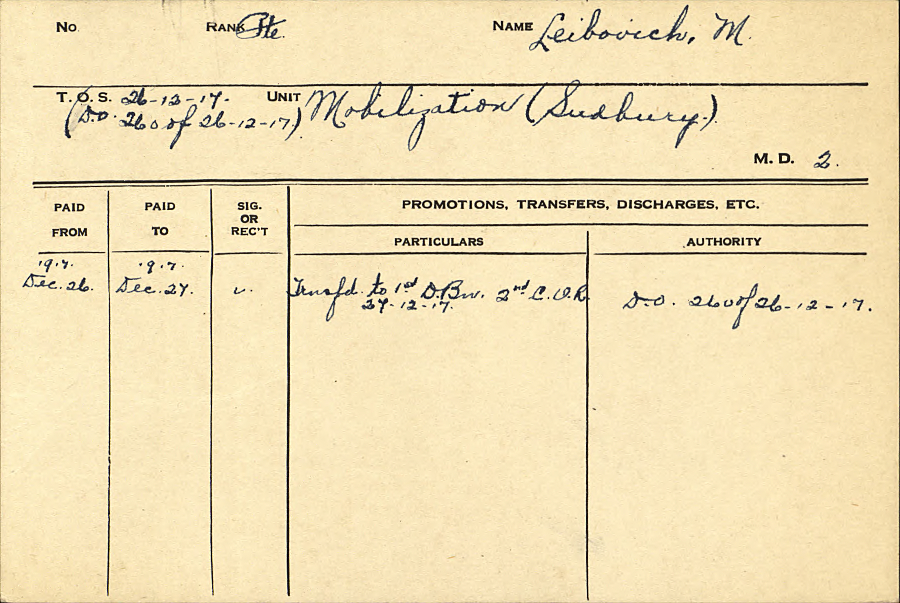 No. RANK Pte. NAME Leibovich, M.
T.O.S. 26-12-17. UNIT Mobilization (Sudbury.)
(D.O. 260 of 26-12-17.)
M. D. 2.
PAID FROM PAID TO SIG. OR REC'T PROMOTIONS, TRANSFERS, DISCHARGES, ETC.
PARTICULARS AUTHORITY
1917. 1917.
Dec. 26. Dec. 27. Transfd. to 1st D.Bn. 2nd C.O.R. D.O. 260 of 26-12-17.
27-12-17.